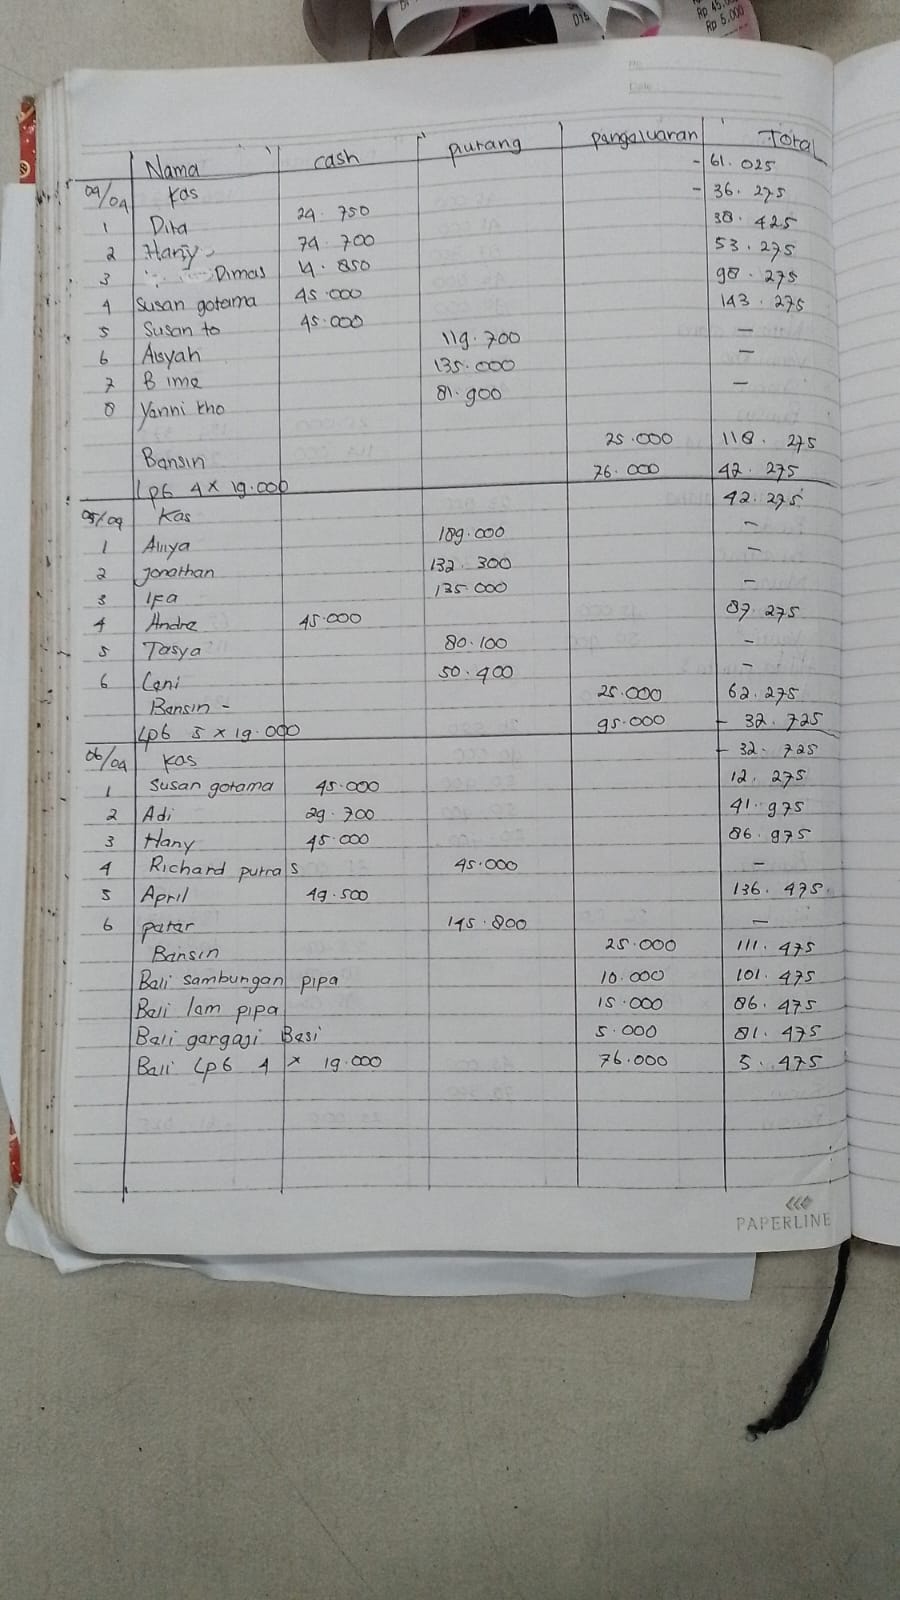 No.
Date
Nama cash piutang pengeluaran Total
04/04 Kas - 61.025
1 Dita 24.750 - 36.275
2 Hany 74.700 38.425
3 Dimas 14.850 53.275
4 Susan gotama 45.000 98.275
5 Susan to 45.000 143.275
6 Aisyah 119.700 -
7 Bima 135.000 -
8 Yanni kho 81.900 -
Bensin 25.000 118.275
LPG 4 x 19.000 76.000 42.275
05/04 Kas 42.275
1 Aliya 189.000 -
2 Jonathan 132.300 -
3 IFa 135.000 -
4 Andre 45.000 87.275
5 Tasya 80.100 -
6 Leni 50.400 -
Bensin - 25.000 62.275
LPG 5 x 19.000 95.000 - 32.725
06/04 Kas - 32.725
1 Susan gotama 45.000 12.275
2 Adi 29.700 41.975
3 Hany 45.000 86.975
4 Richard putra S 45.000 -
5 April 49.500 136.475
6 patar 145.800 -
Bensin 25.000 111.475
Beli sambungan pipa 10.000 101.475
Beli lem pipa 15.000 86.475
Beli gergaji Besi 5.000 81.475
Beli LPG 4 x 19.000 76.000 5.475
PAPERLINE